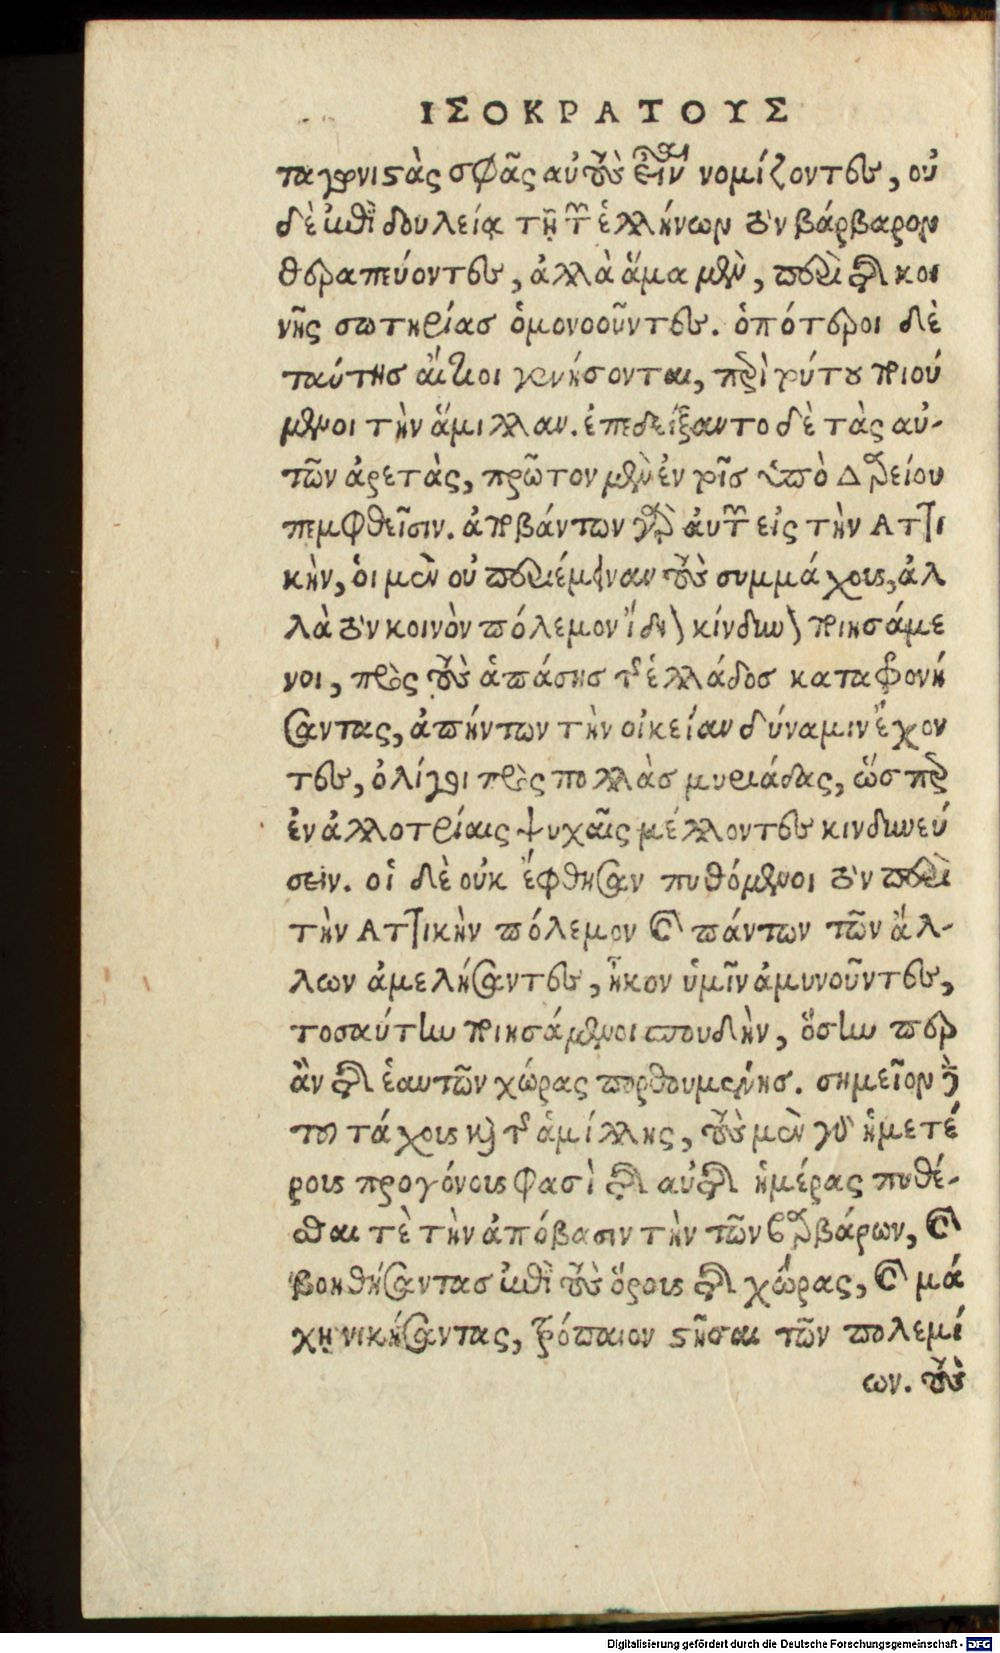 ΙΣΟΚΡΑΤΟΥΣ
ταγωνιστὰς σφᾶς αὐτοὺς εἶναι νομίζοντες, οὐ
δὲ ἐπὶ δουλείᾳ τῇ τῶν ἑλλήνων τὸν βάρβαρον
θεραπεύοντες, ἀλλὰ ἅμα μὲν, περὶ τῆς κοι
νῆς σωτηρίας ὁμονοοῦντες. ὁπότεροι δὲ
ταύτης αἴτιοι γενήσονται, περὶ τούτου ποιού
μενοι τὴν ἅμιλλαν. ἐπεδείξαντο δὲ τὰς αὐ-
τῶν ἀρετὰς, πρῶτον μὲν ἐν τοῖς ὑπὸ Δαρείου
πεμφθεῖσιν. ἀποβάντων γὰρ αὐτῶν εἰς τὴν Ἀττι
κὴν, οἱ μὲν οὐ περιέμειναν τοὺς συμμάχους, ἀλ
λὰ τὸν κοινὸν πόλεμον ἴδιον κίνδυνον ποιησάμε
νοι, πρὸς τοὺς ἁπάσης τῆς ἑλλάδος καταφρονή
σαντας, ἀπήντων τὴν οἰκείαν δύναμιν ἔχον
τες, ὀλίγοι πρὸς πολλὰς μυριάδας, ὥσπερ
ἐν ἀλλοτρίαις ψυχαῖς μέλλοντες κινδυνεύ
σειν. οἱ δὲ οὐκ ἔφθησαν πυθόμενοι τὸν περὶ
τὴν Ἀττικὴν πόλεμον καὶ πάντων τῶν ἄλ-
λων ἀμελήσαντες, ἧκον ὑμῖν ἀμυνοῦντες,
τοσαύτην ποιησάμενοι σπουδὴν, ὅσην περ
ἂν τῆς ἑαυτῶν χώρας πορθουμένης. σημεῖον δὲ
τοῦ τάχους καὶ τῆς ἁμίλλης, τοὺς μὲν γὰρ ἡμετέ
ρους προγόνους φασὶ τῆς αὐτῆς ἡμέρας πυθέ-
σθαι τὲ τὴν ἀπόβασιν τὴν τῶν βαρβάρων, καὶ
βοηθήσαντας ἐπὶ τοὺς ὅρους τῆς χώρας, καὶ μά
χῃ νικήσαντας, τρόπαιον στῆσαι τῶν πολεμί
ων. τοὺς
Digitalisierung gefördert durch die Deutsche Forschungsgemeinschaft - DFG